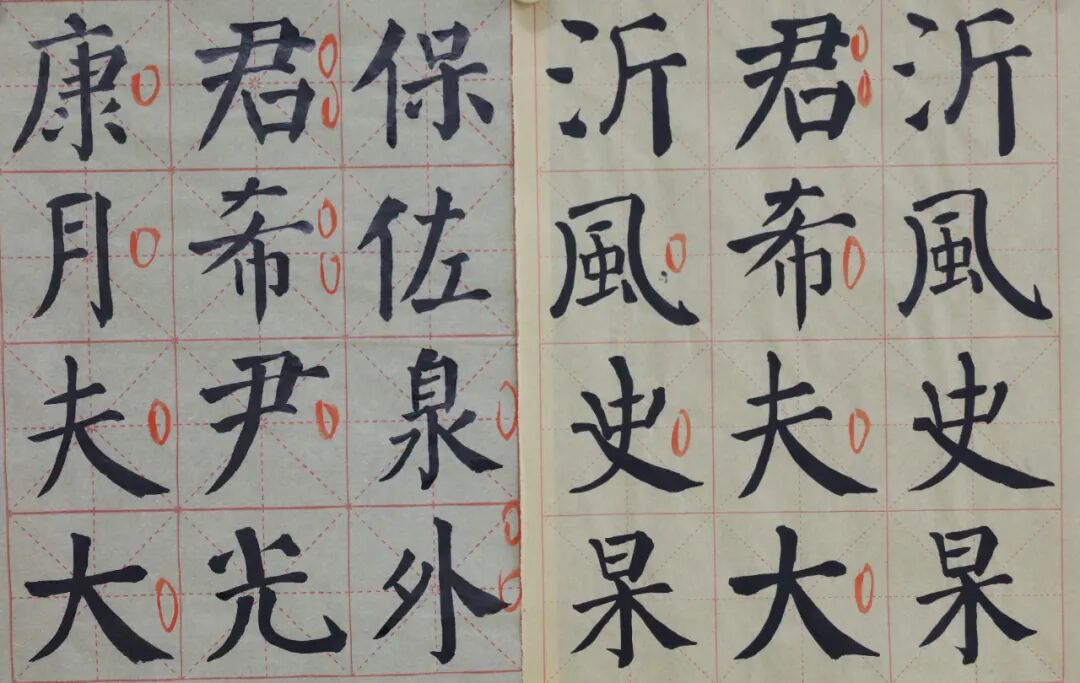 沂風史杲
君希夫大
沂風史杲
保佐泉外
君希尹光
康月夫大